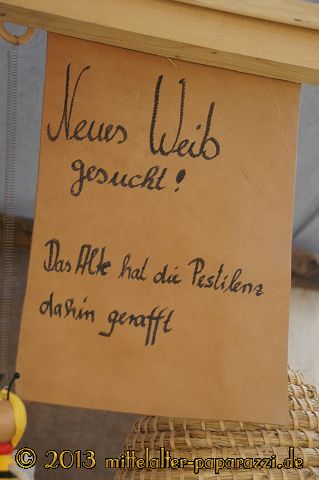 Neues Weib
gesucht!
Das Alte hat die Pestilenz
dahin gerafft
© 2013 mittelalter-paparazzi.de